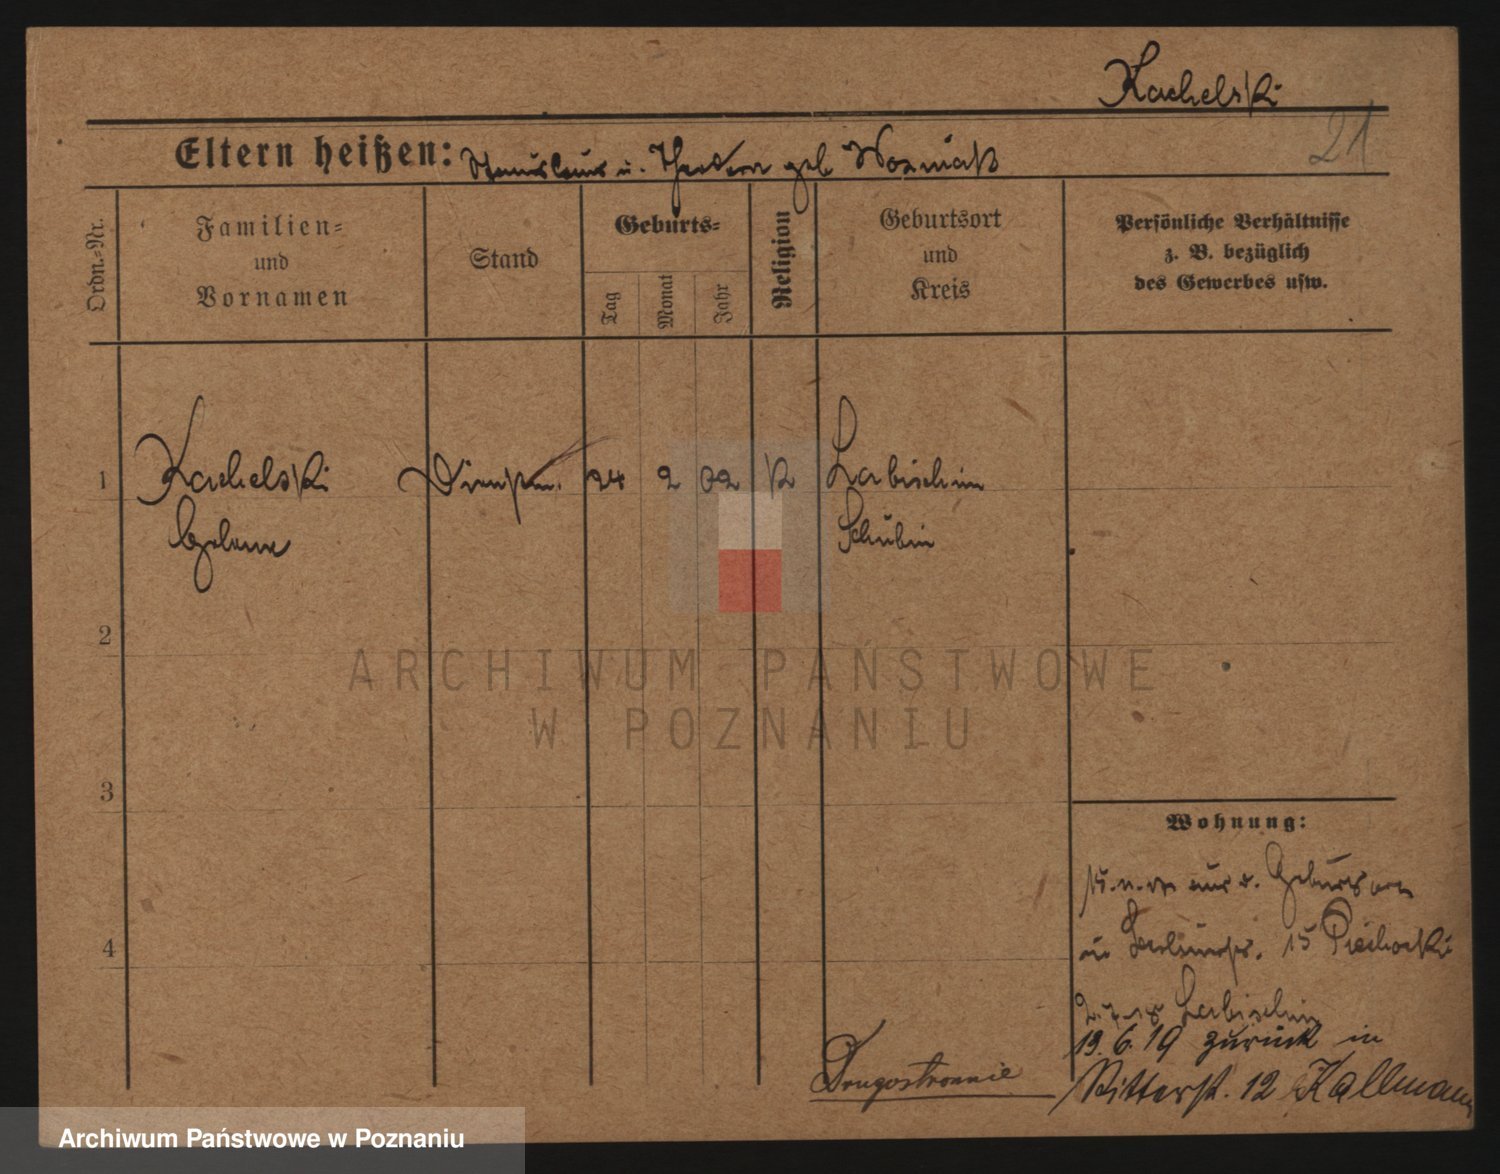 Kachelski
21
Eltern heißen: Stanislaus u. Theodora geb Wozniak
Ordn.-Nr.
Familien-
und
Vornamen
Stand
Geburts-
Tag
Monat
Jahr
Religion
Geburtsort
und
Kreis
Persönliche Verhältnisse
z. B. bezüglich
des Gewerbes usw.
1 Kachelski Dienstm. 24 2 02 K Labischin
Helene Schubin
2
ARCHIWUM PAŃSTWOWE
W POZNANIU
3
Wohnung:
aus d. Geburtsort
4
in 15 Piechocki
2.7.18 Labischin
13.6.19 zurück in
Ritterst. 12 Kallmann
Drugostronnie
Archiwum Państwowe w Poznaniu